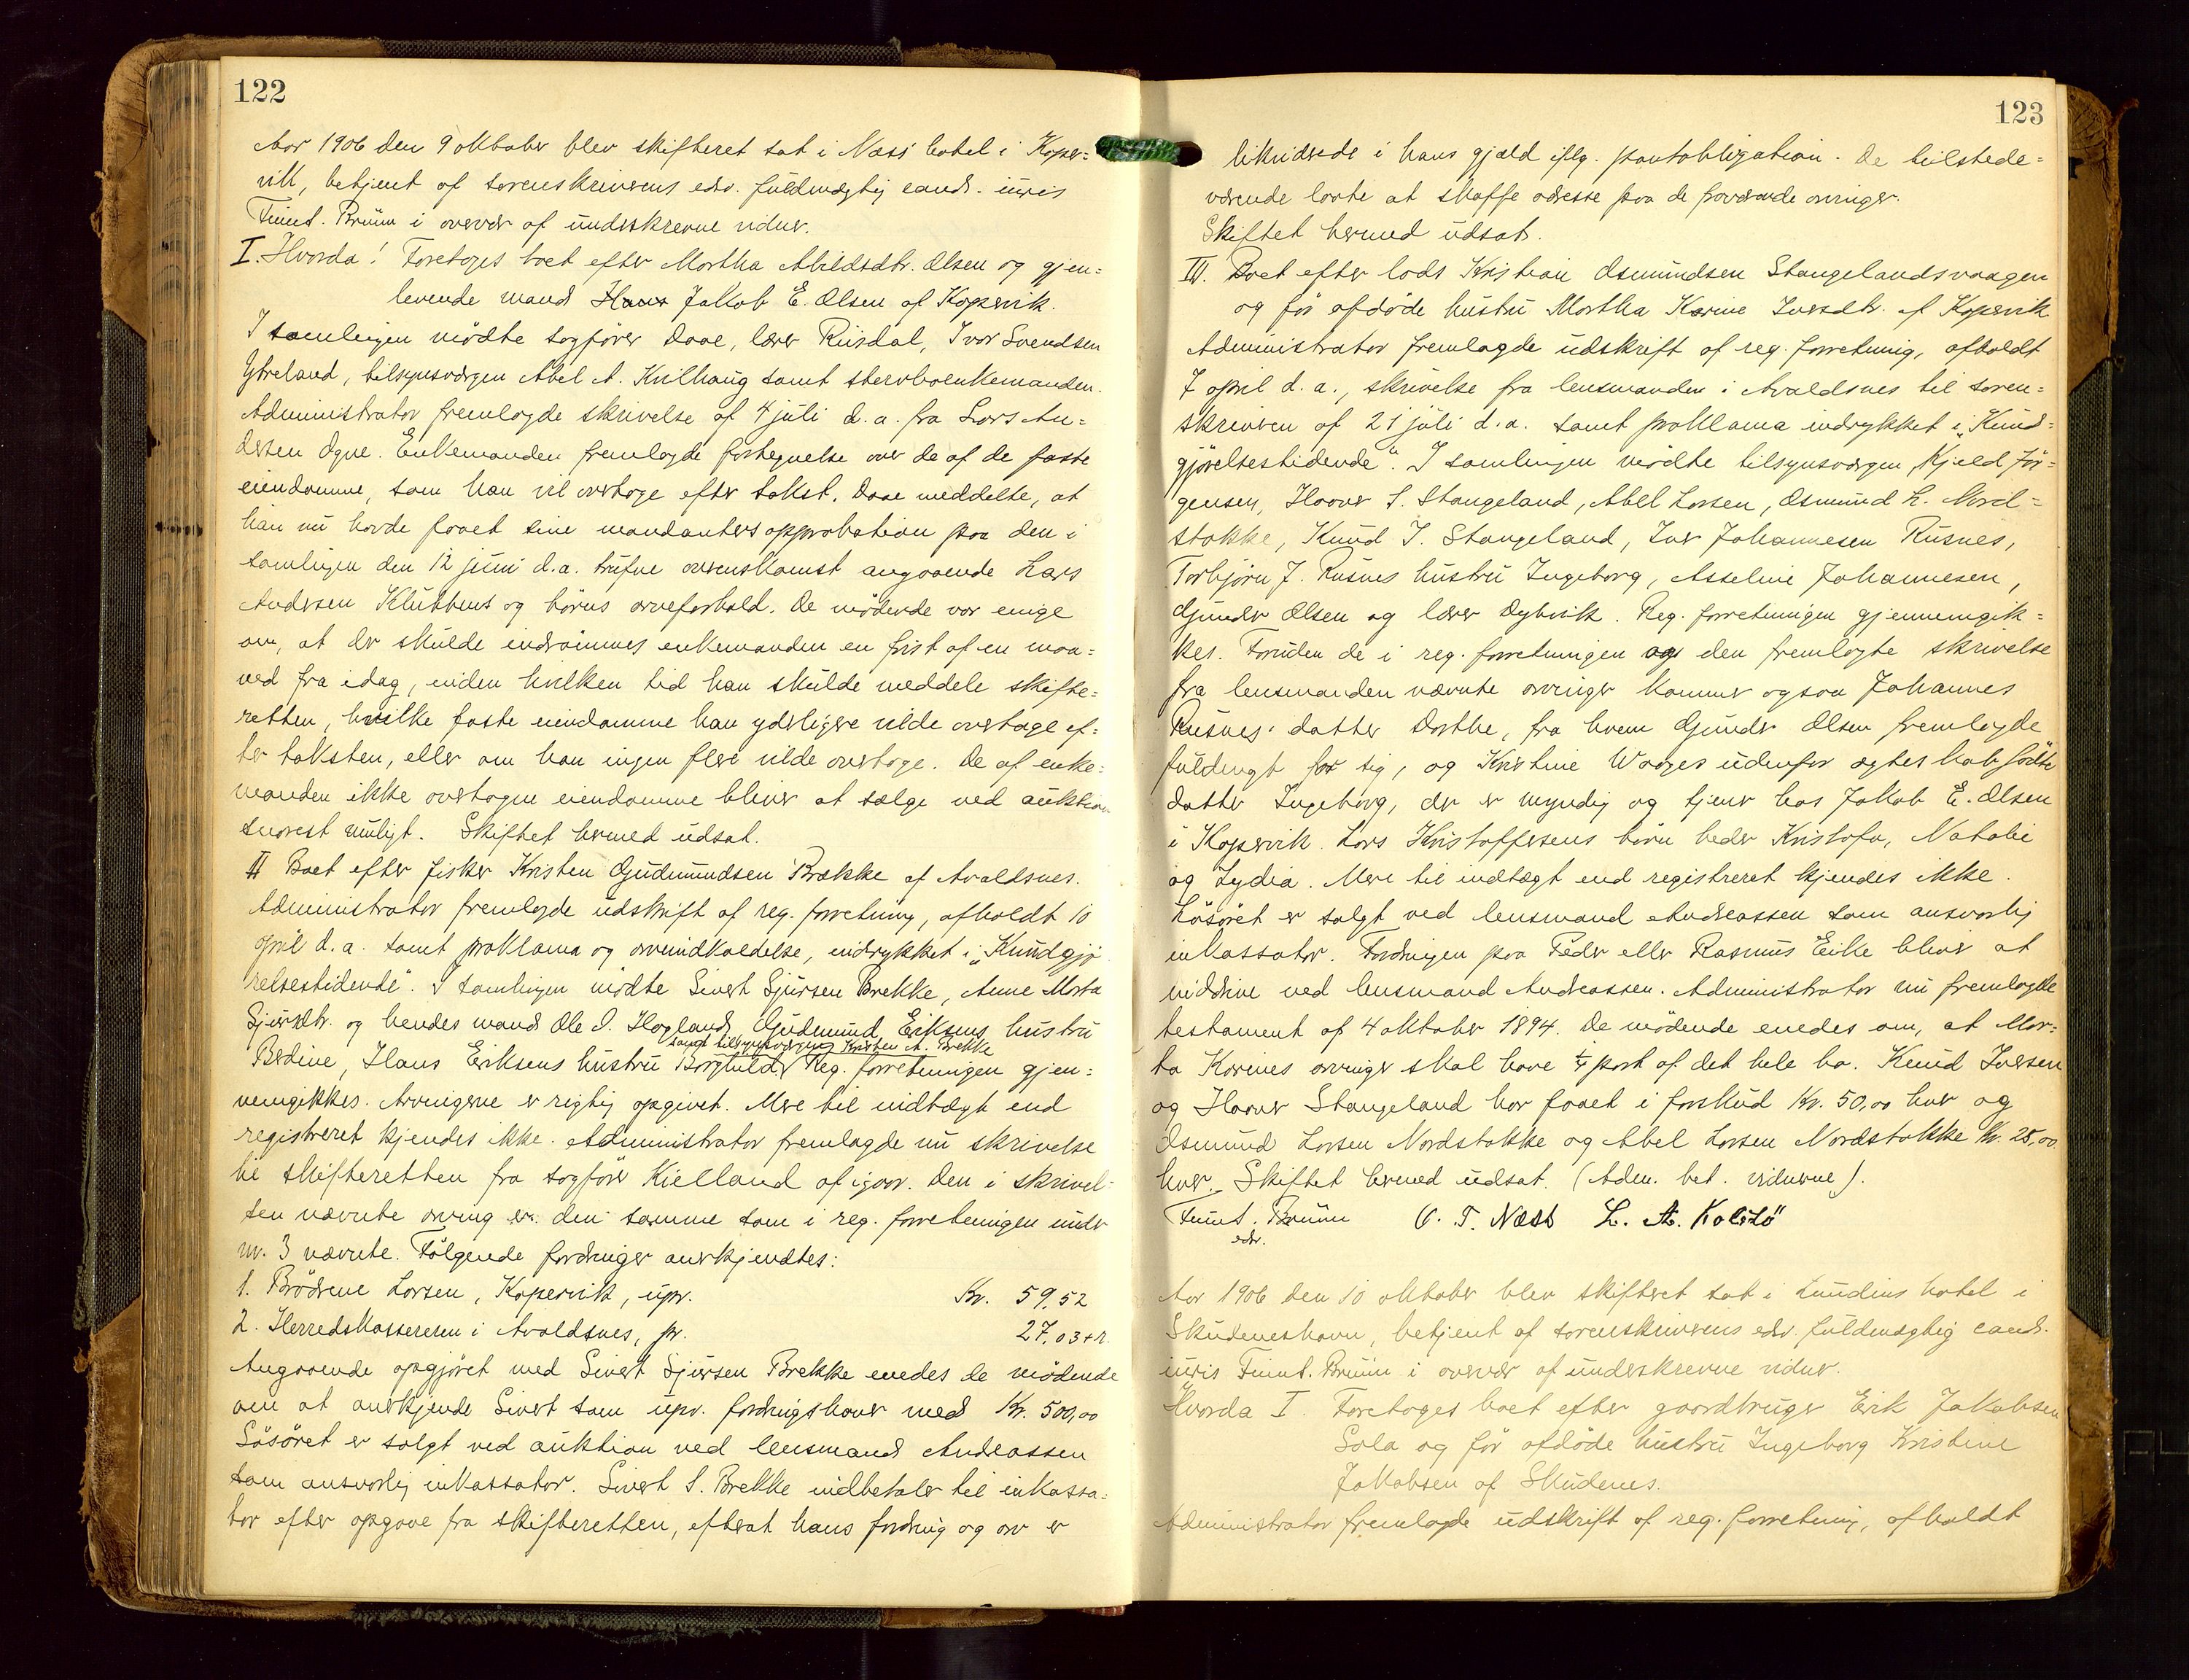 122
Aar 1906 den 9 oktober blev skifteret sat i Næss' hotel i Koper=
vik, betjent af sorenskriverens edsv. fuldmægtig cand. juris
Finnt. Bruun i overvær af underskrevne vidner.
I. Hvorda! Foretoges boet efter Martha Abeldsdtr. Olsen og gjen=
levende mand Hans Jakob E. Olsen af Kopervik.
I samlingen mödte sagförer Daae, lærer Riisdal, Ivar Svendsen
Ytreland, tilsynsværgen Abel A. Kvilhaug samt stervboenkemanden.
Administrator fremlagde skrivelse af 4 juli d.a. fra Lars An=
dersen Ogne. Enkemanden fremlagde fortegnelse over de af de faste
eiendomme, som han vil overtage efter takst. Daae meddelte, at
han nu havde faaet sine mandanters approbation paa den i
samlingen den 12 juni d.a. trufne overenskomst angaaende Lars
Andersen Klubbens og börns arveforhold. De mödende var enige
om, at der skulde indrömmes enkemanden en frist af en maa=
ned fra idag, inden hvilken tid han skulde meddele skifte=
retten, hvilke faste eiendomme han yderligere vilde overtage ef=
ter taksten, eller om han ingen flere vilde overtage. De af enke=
manden ikke overtagne eiendomme bliver at sælge ved auktion
snarest muligt. Skiftet hermed udsat.
II Boet efter fisker Kristen Gudmundsen Brække af Avaldsnes.
Administrator fremlagde udskrift af reg. forretning, afholdt 10
april d.a. samt proklama og arveindkaldelse, indrykket i „Kundgjö
relsestidende". I samlingen mödte Sivert Sjursen Brekke, Anne Marta
Sjursdtr. og hendes mand Ole I. Hagland, Gudmund Eriksens hustru
samt tilsynsværgen Kristen A. Brekke
Berdine, Hans Eriksens hustru Borghild. Reg. forretningen gjen=
nemgikkes. Arvingerne er rigtig opgivet. Mere til indtægt end
registreret kjendes ikke. Administrator fremlagde nu skrivelse
til skifteretten fra sagförer Kielland af igaar. Den i skrivel=
sen nævnte arving er den samme som i reg. forretningen under
nr. 3 nævnte. Fölgende fordringer anerkjendtes:
1. Brödrene Larsen, Kopervik, upr. Kr. 59,52
2. Herredskassereren i Avaldsnes, pr. 27,03 + r.
Angaaende opgjöret med Sivert Sjursen Brekke enedes de mödende
om at anerkjende Sivert som upr. fordringshaver med Kr. 500,00
Lösöret er solgt ved auktion ved lensmand Andreassen
som ansvarlig inkassator. Sivert S. Brekke indbetaler til inkassa=
tor efter opgave fra skifteretten, efterat hans fordring og arv er
123
likviderede i hans gjæld iflg. pantobligation. De tilstede=
værende lovte at skaffe adresse paa de fraværende arvinger.
Skiftet hermed udsat.
III. Boet efter lods Kristian Osmundsen Stangelandsvaagen
og för afdöde hustru Martha Karine Iversdtr. af Kopervik
Administrator fremlagde udskrift af reg. forretning, afholdt
7 april d.a., skrivelse fra lensmanden i Avaldsnes til soren=
skriveren af 21 juli d.a. samt proklama indrykket i „Kund=
gjörelsestidende". I samlingen mödte tilsynsværgen Kjeld Jör=
gensen, Haaver S. Stangeland, Abel Larsen, Osmund L. Nord=
stokke, Knud I. Stangeland, Iver Johannesen Rusnes,
Torbjörn J. Rusnes hustru Ingeborg, Asseline Johannesen,
Gunder Olsen og lærer Dybvik. Reg. forretningen gjennemgik=
kes. Foruden de i reg. forretningen og den fremlagte skrivelse
fra lensmanden nævnte arvinger kommer ogsaa Johannes
Rusnes' datter Dorthe, fra hvem Gunder Olsen fremlagde
fuldmagt for sig, og Kristine Waages udenfor ægteskab födte
datter Ingeborg, der er myndig og tjener hos Jakob E. Olsen
i Kopervik. Lars Kristoffersens börn heder Kristofa, Natalie
og Lydia. Mere til indtægt end registreret kjendes ikke.
Lösöret er solgt ved lensmand Andreassen som ansvarlig
inkassator. Fordringen paa Peder eller Rasmus Eike bliver at
inddrive ved lensmand Andreassen. Administrator nu fremlagde
testament af 4 oktober 1894. De mödende enedes om, at Mar=
ta Karines arvinger skal have part af det hele bo. Knud Iversen
og Haaver Stangeland har faaet i forskud Kr. 50,00 hver og
Osmund Larsen Nordstokke og Abel Larsen Nordstokke Kr. 25,00
hver. Skiftet hermed udsat. (Adm. bet. vidnerne).
Finnt. Bruun O. T. Næss L. A. Kolstö
edsv.
Aar 1906 den 10 oktober blev skifteret sat i Lundins hotel i
Skudeneshavn, betjent af sorenskriverens edsv. fuldmægtig cand.
juris Finnt. Bruun i overvær af underskrevne vidner.
Hvorda I. Foretoges boet efter gaardbruger Erik Jakobsen
Sola og för afdöde hustru Ingeborg Kristene
Jakobsen af Skudenes.
Administrator fremlagde udskrift af reg. forretning, afholdt